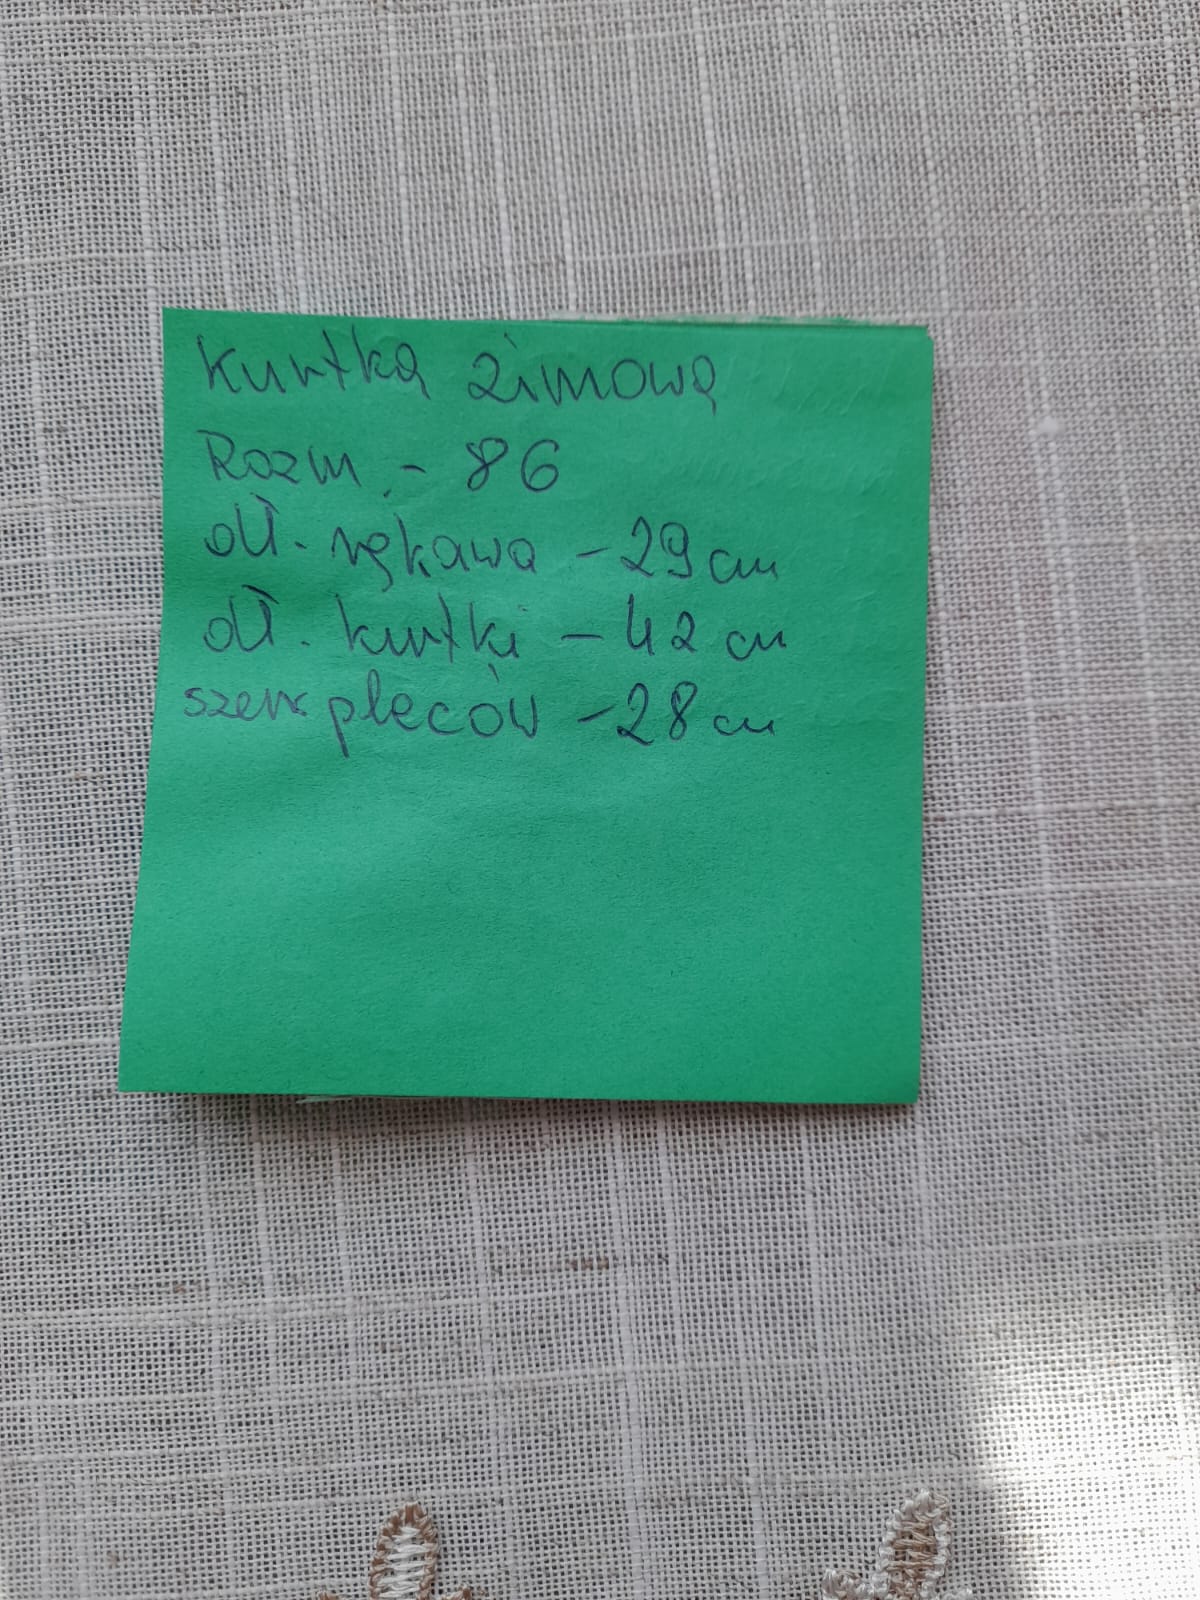 Kurtka zimowa
Rozm. - 86
dł. rękawa - 29 cm
dł. kurtki - 42 cm
szer pleców - 28 cm